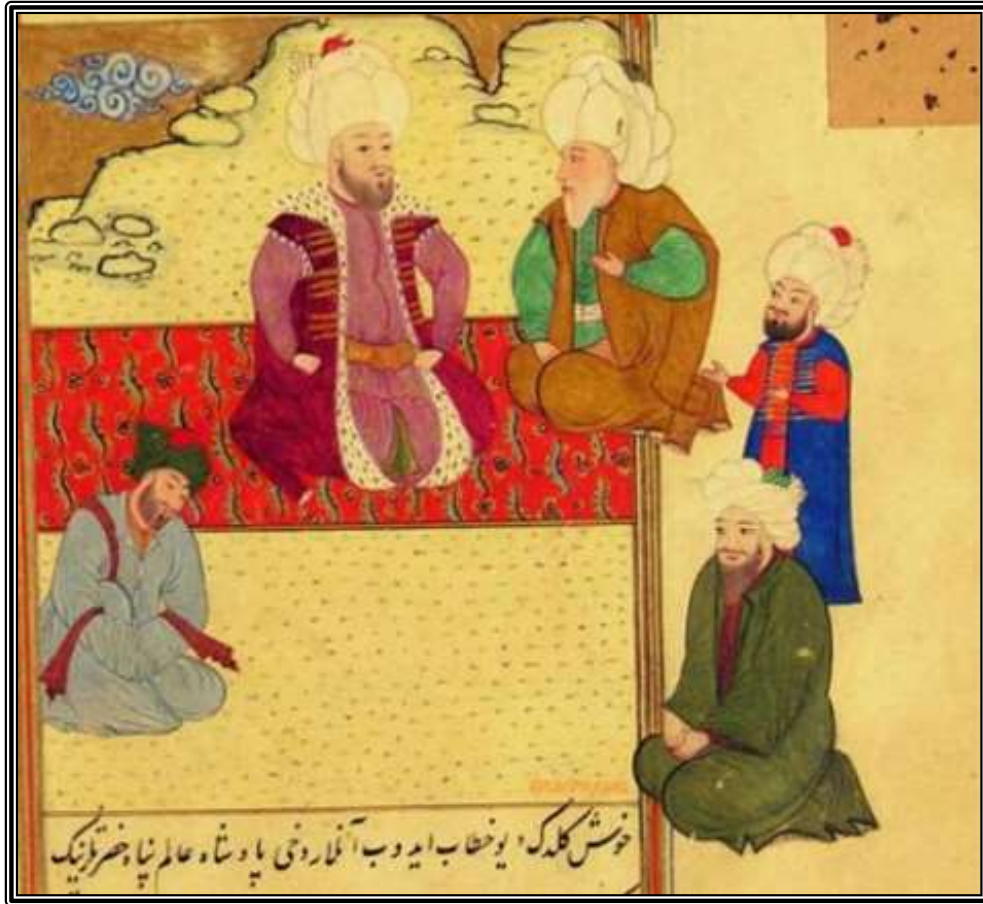 خوش كلدك ديو خطاب ايدوب آنلار دخى پادشاه عالم پناه حضرتلرينك